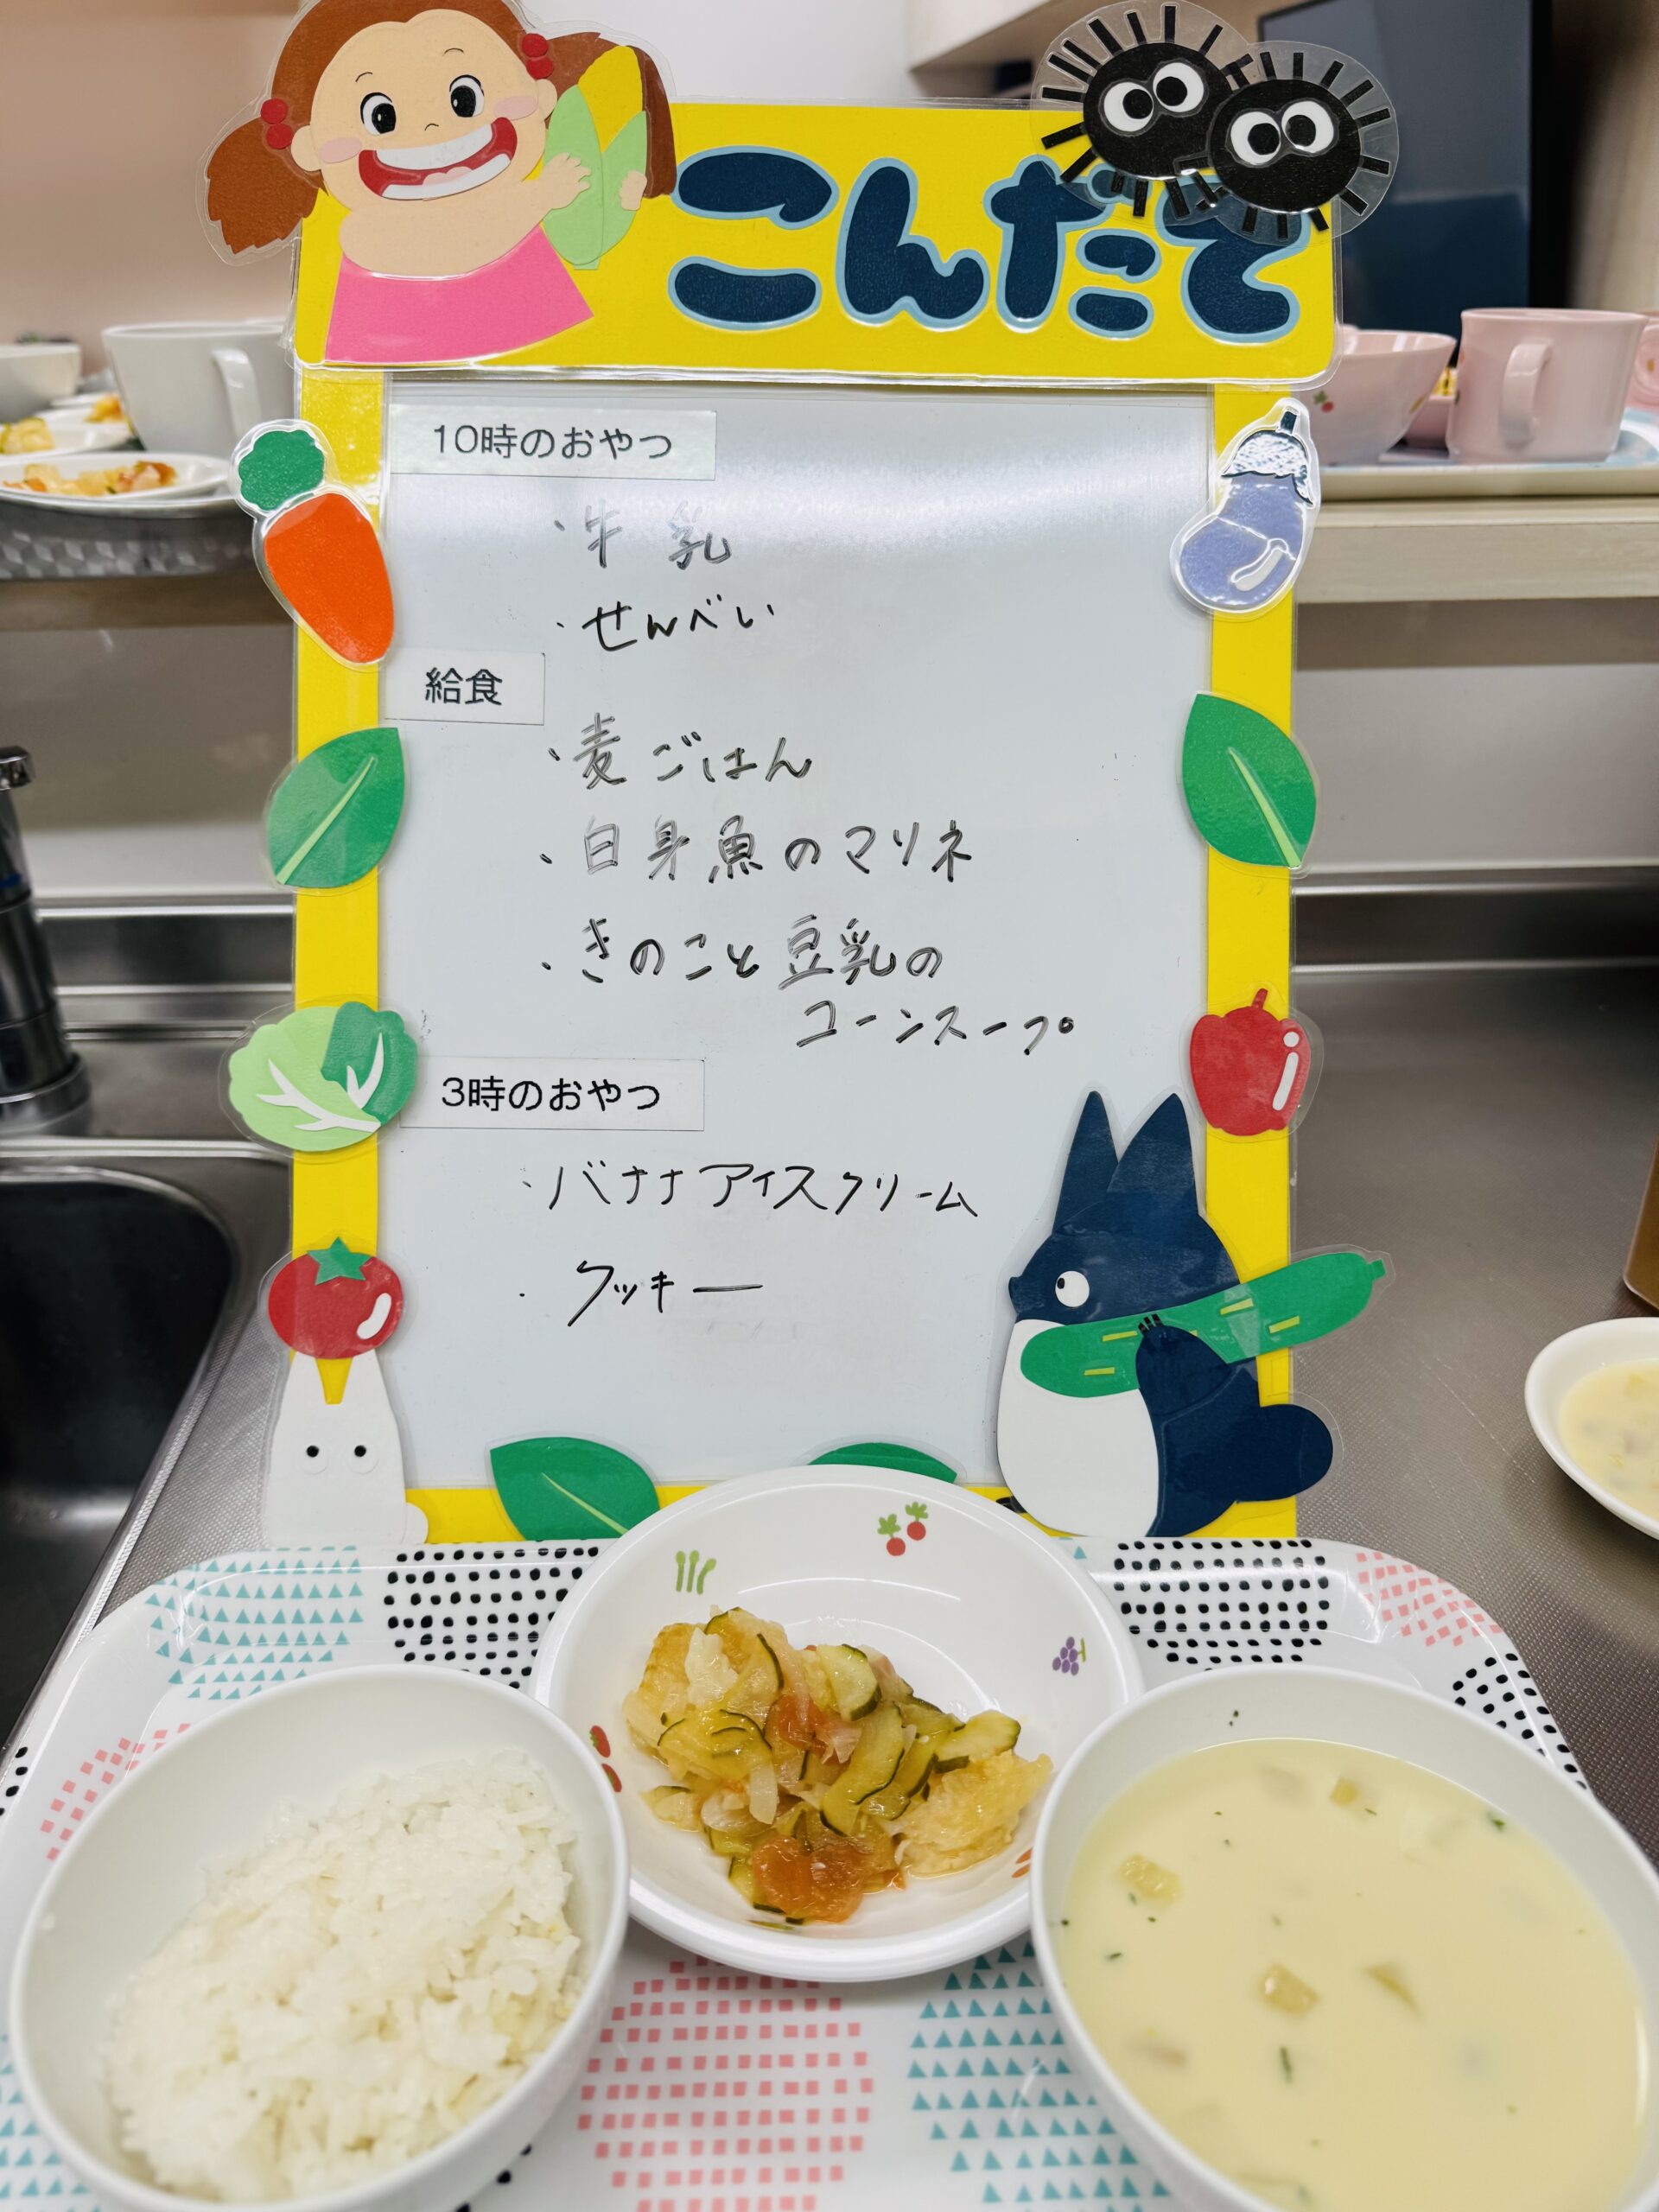 こんだて
10時のおやつ
・牛乳
・せんべい
給食
・麦ごはん
・白身魚のマリネ
・きのこと豆乳の
コーンスープ
3時のおやつ
・バナナアイスクリーム
・クッキー